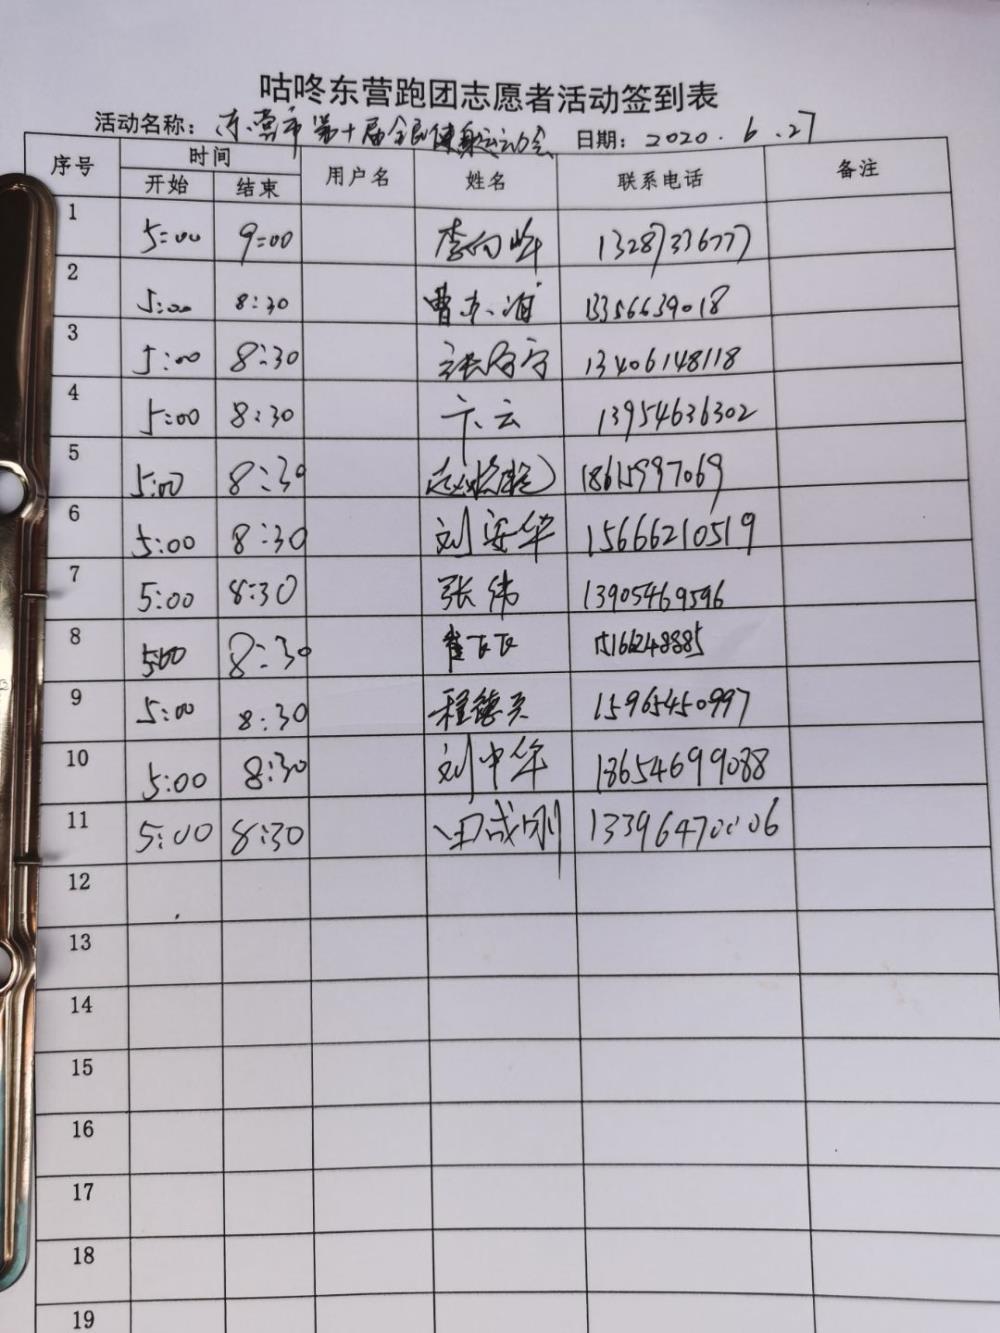 咕咚东营跑团志愿者活动签到表
活动名称：东营市第十届全民健身运动会 日期：2020.6.27
序号 时间 用户名 姓名 联系电话 备注
开始 结束
1 5:00 9:00 李向峰 13287336777
2 5:00 8:30 曹 13356639018
3 5:00 8:30 张 13406148118
4 5:00 8:30 卞云 13954636302
5 5:00 8:30 赵 18615997069
6 5:00 8:30 刘安华 15666210519
7 5:00 8:30 张伟 13905469596
8 5:00 8:30 崔飞飞 15166248885
9 5:00 8:30 程德 15965450997
10 5:00 8:30 刘中华 18654699088
11 5:00 8:30 田成刚 13396470006
12
13
14
15
16
17
18
19